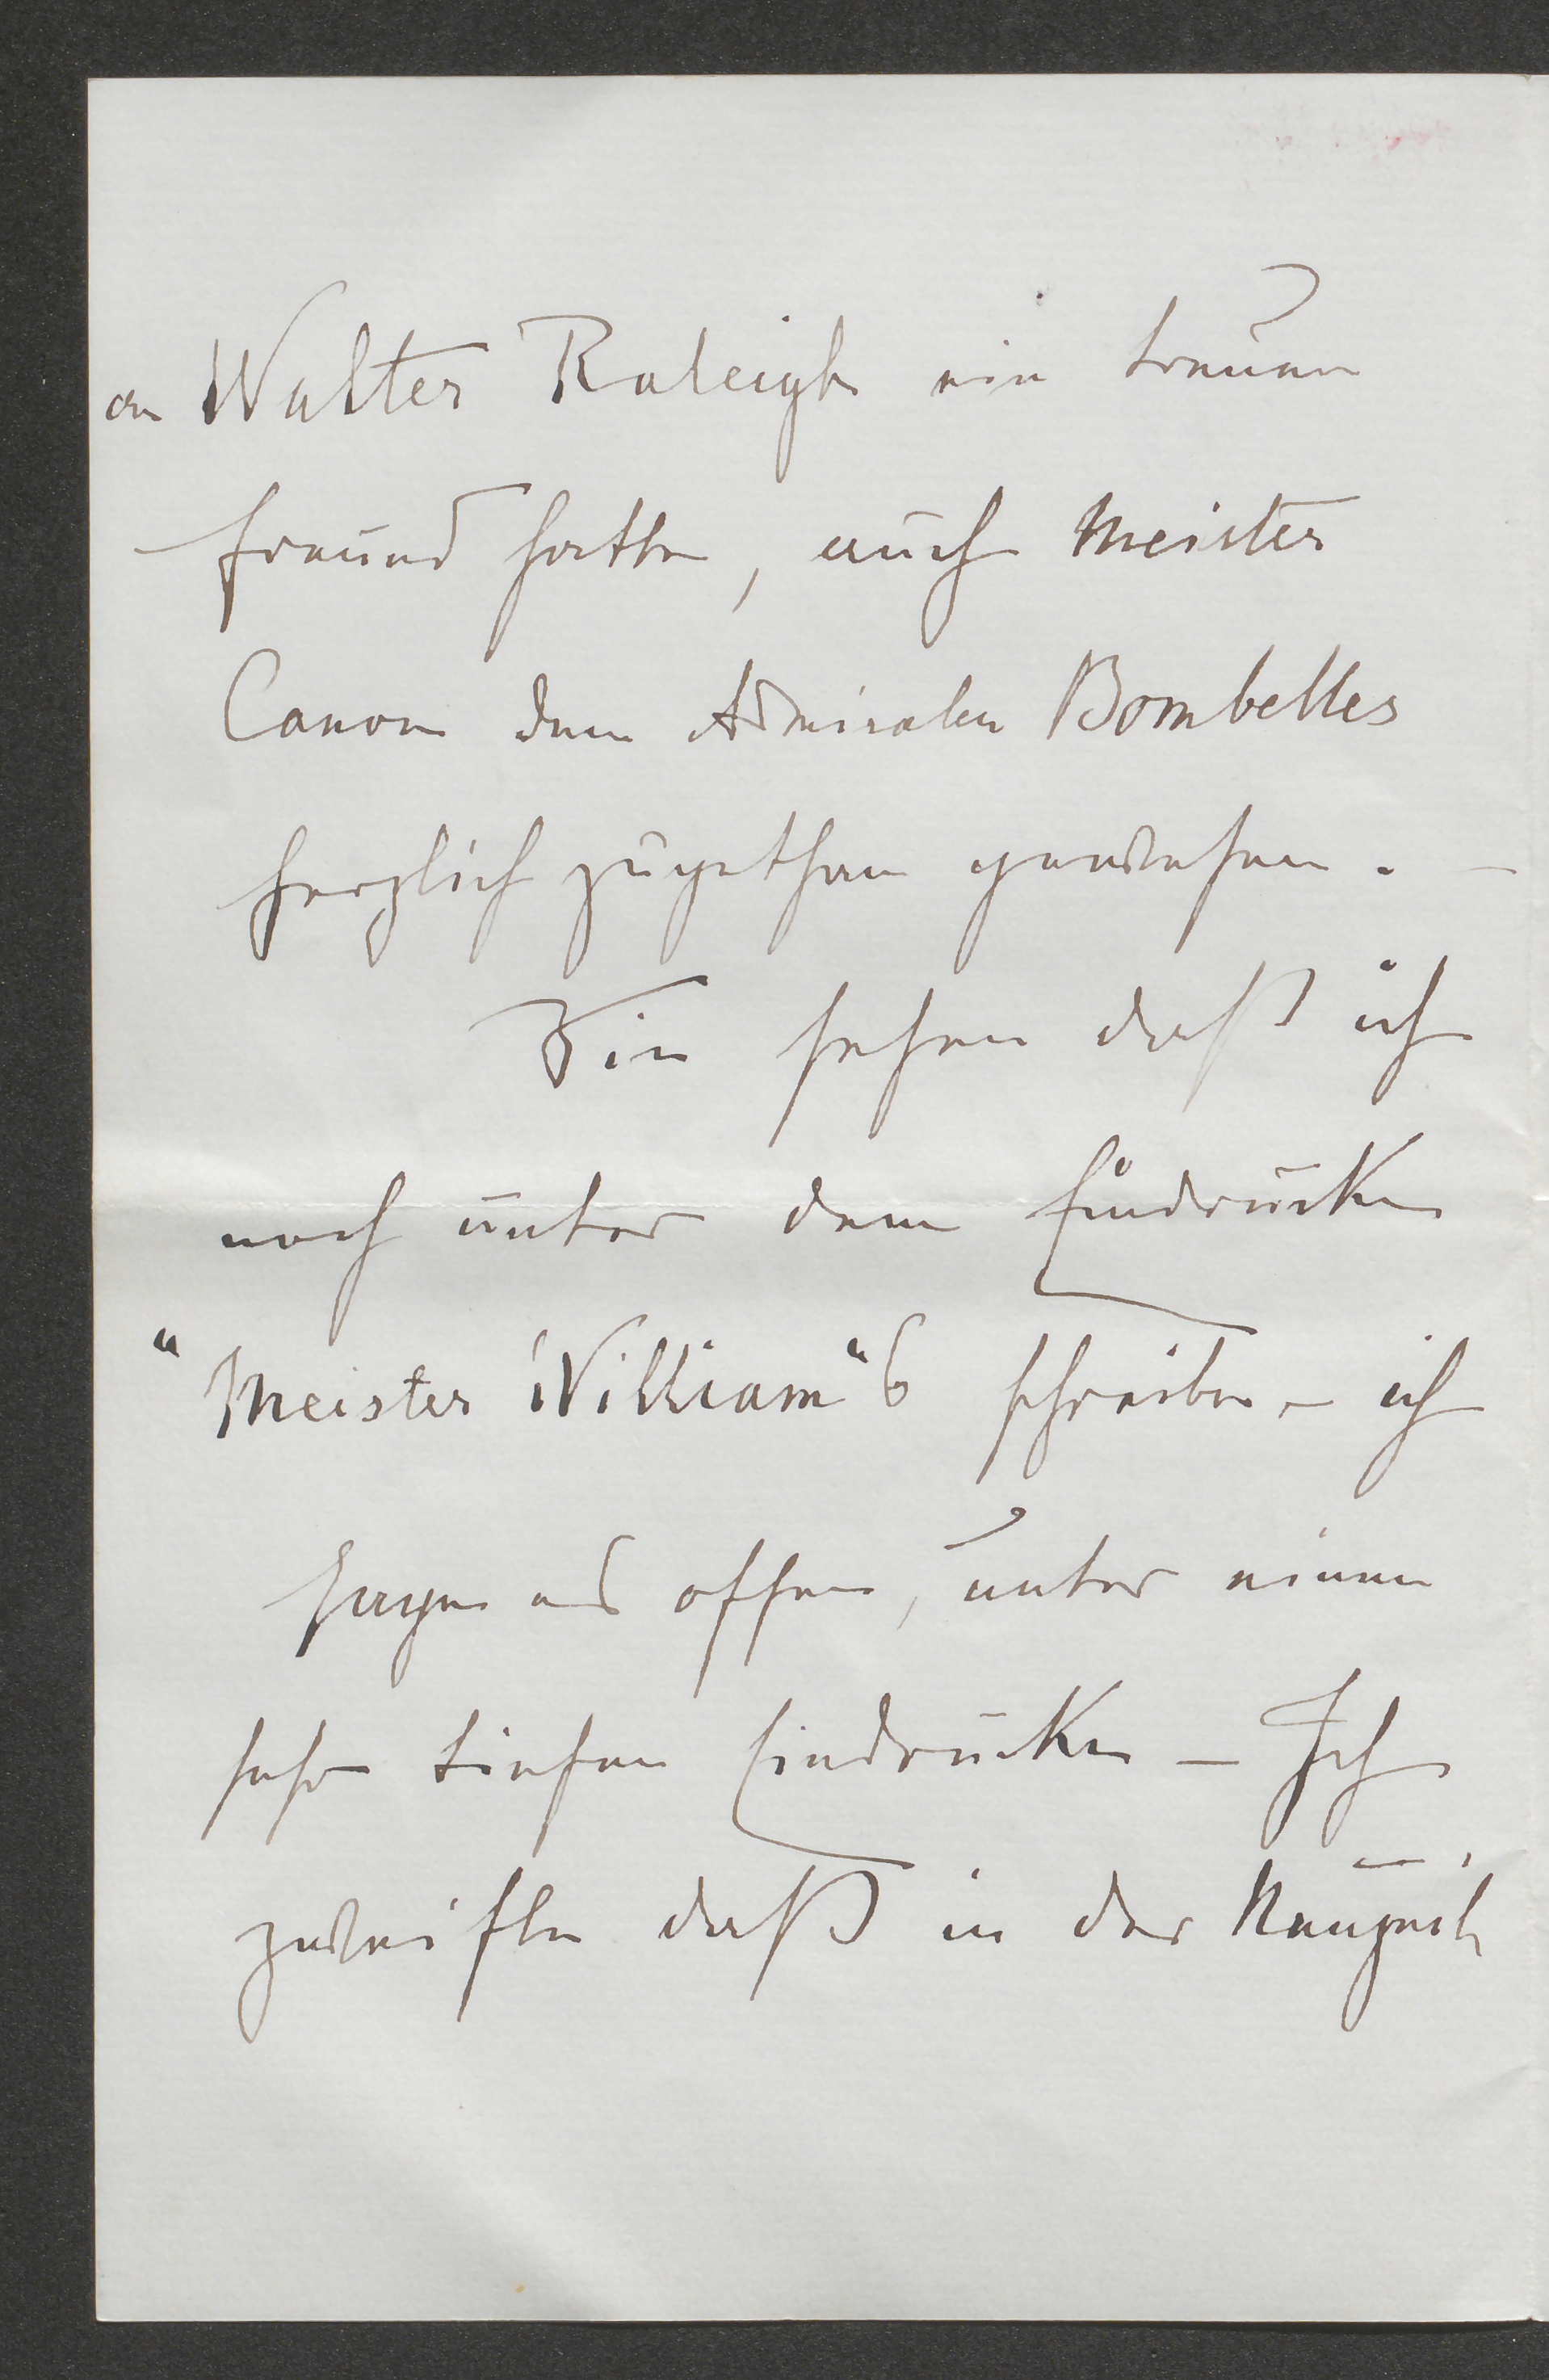 an Walter Raleigh ein treuen
Freund hatte, auch Meister
Canon dem Admiralen Bombelles
herzlich zugethan gewesen. –
Sie sehen daß ich
noch unter dem Eindrucke
"Meister William"s schreibe – ich
sage es offen, unter einem
sehr tiefen Eindrucke – Ich
zweifle daß in der Neuzeit